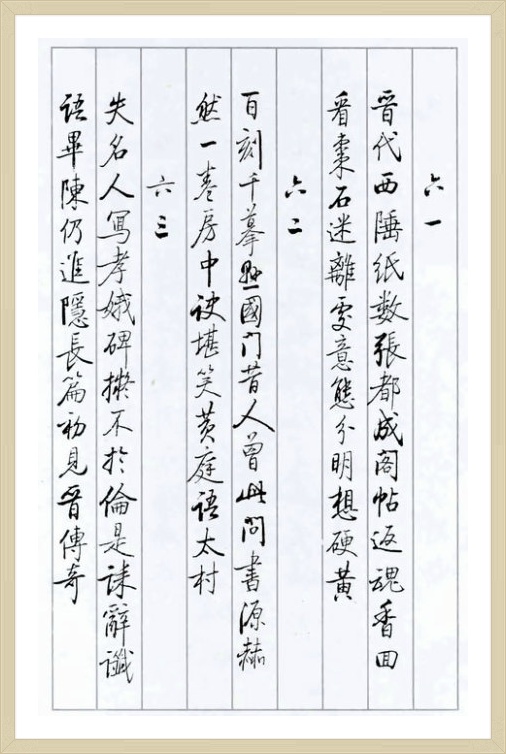 六一
晉代西陲紙數張都成閣帖返魂香回
看棗石迷離處意態分明想硬黃
六二
百刻千摹懸國門昔人曾此問書源赫
然一卷房中訣堪笑黃庭語太村
六三
失名人寫孝娥碑擬不於倫是誄辭讖
語畢陳仍進隱長篇初見晉傳奇